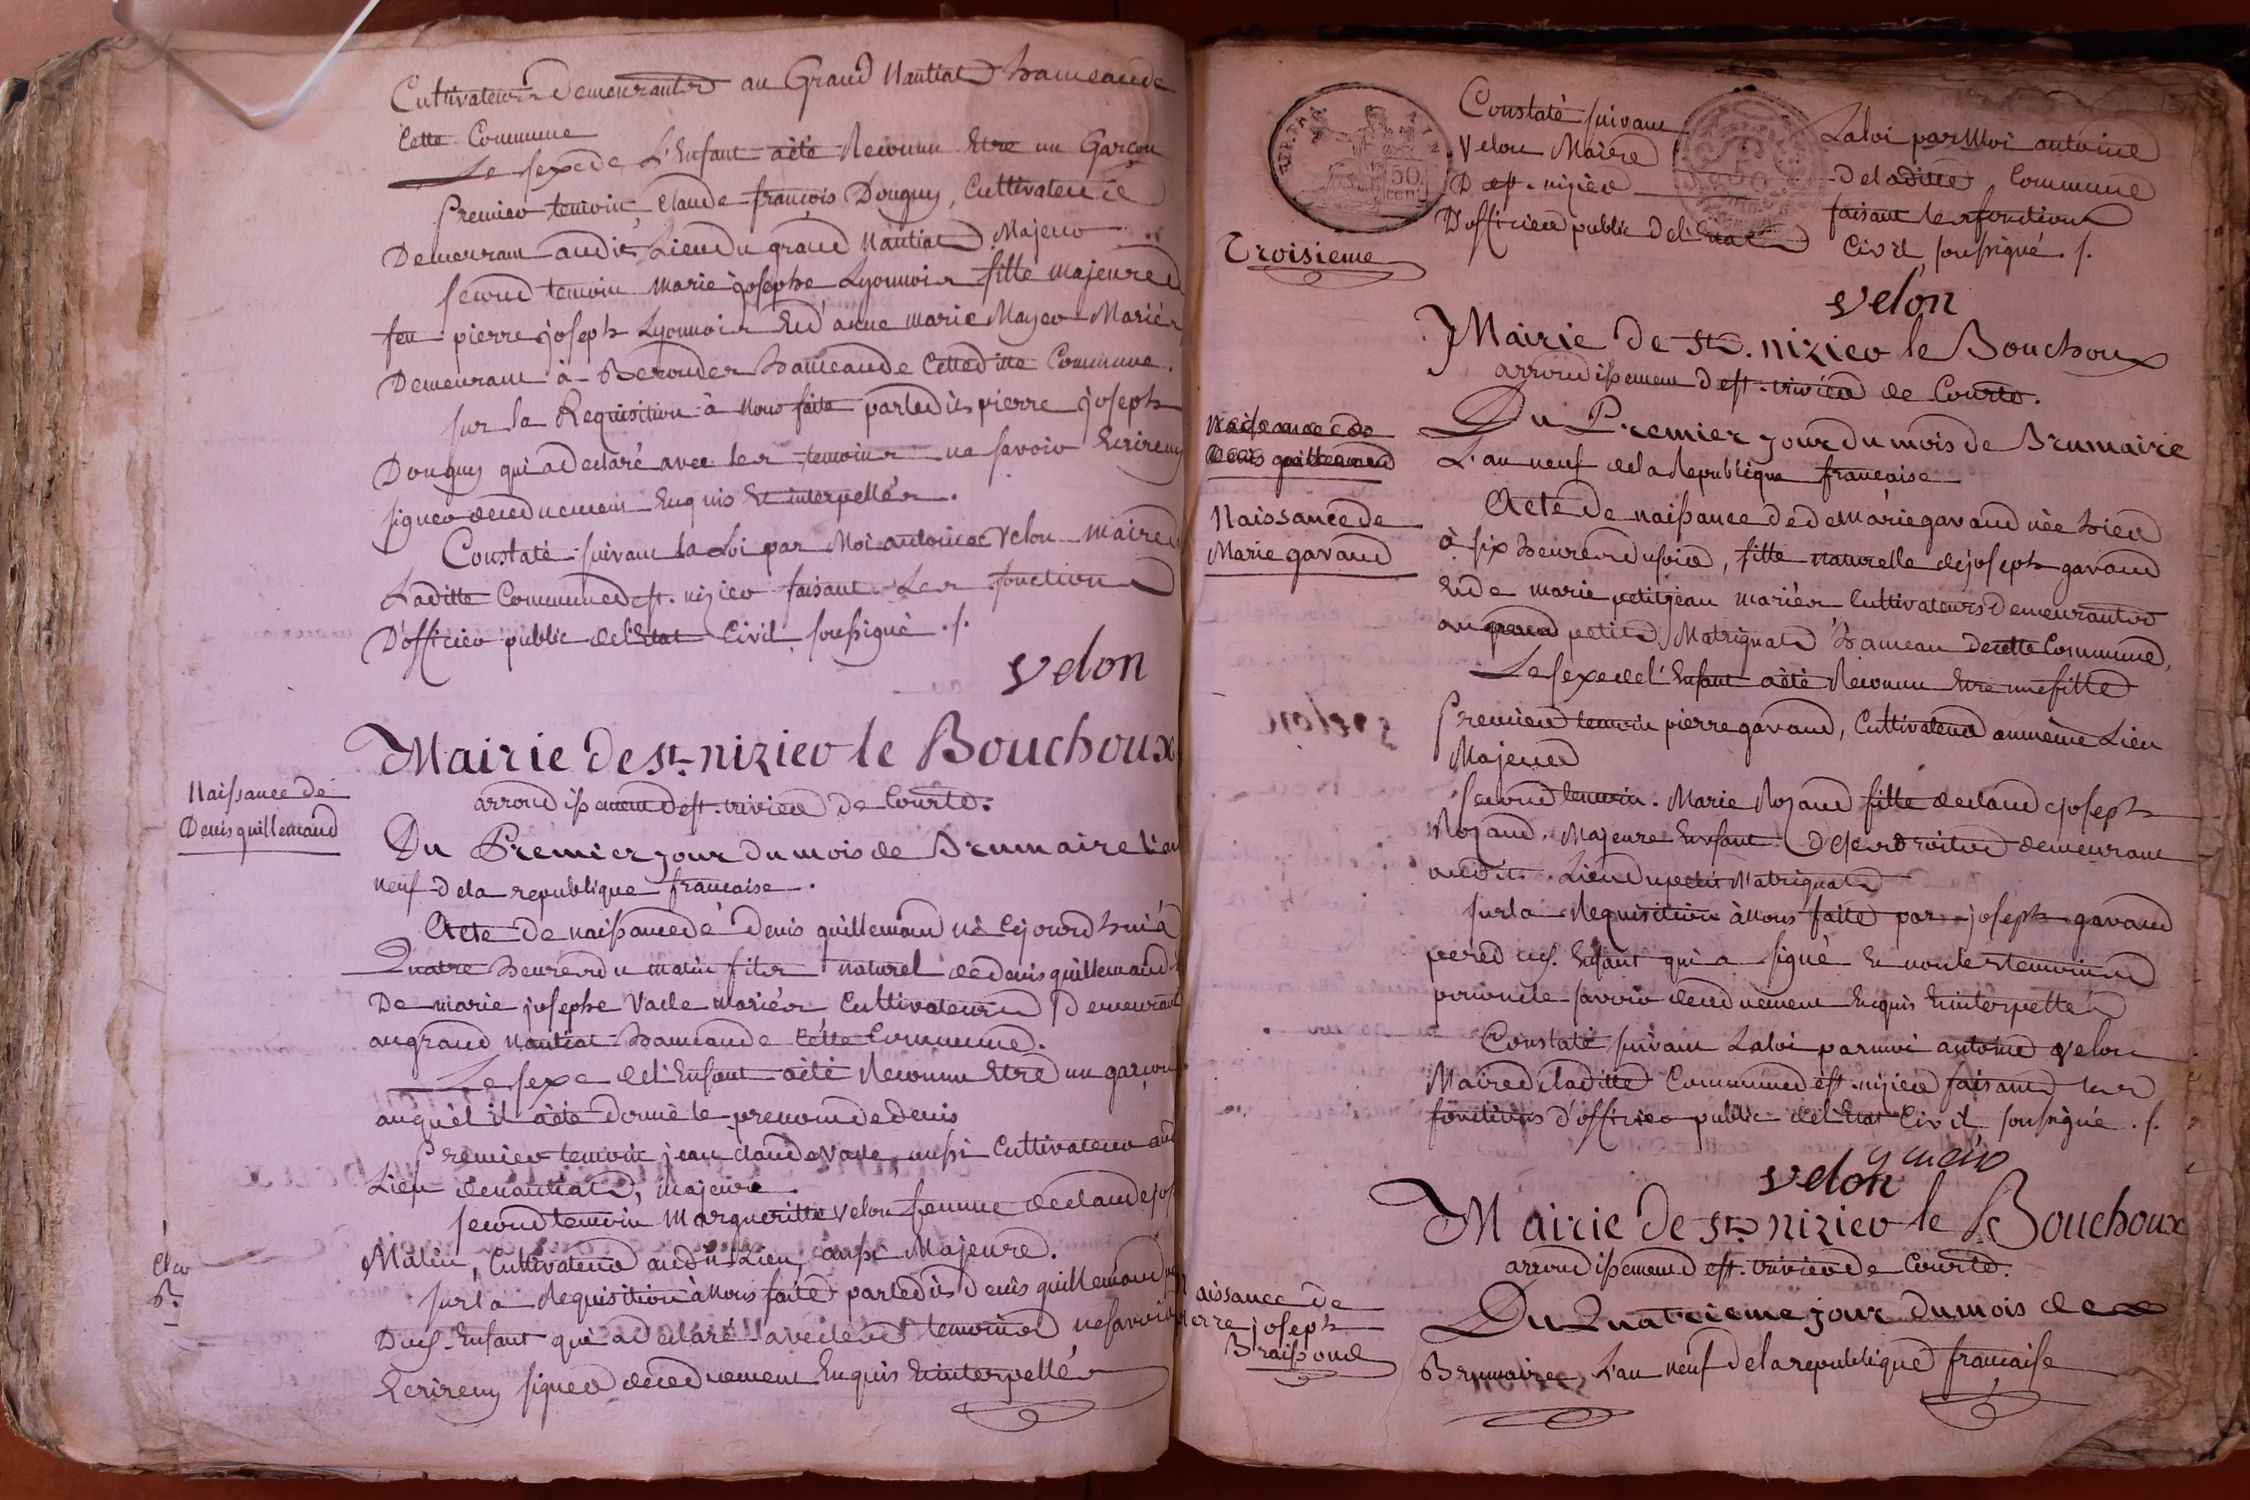 Cultivateurs Demeurants au Grand Nantiat hameau de
Cette Commune
Le sexe de L'Enfant a èté Reconnu Etre un Garcon
Premier temoin, Claude françois Donguy, Cultivateur
Demeurant audit Lieu du grand Nantiat, Majeur
second temoin marie josephe Lyonnois fille majeure
feu pierre joseph Lyonnois Et d'anne marie Mayer Mariés
Demeurant à Berouder hameau de Cettedite Commune.
sur la Requisition à nous faite par ledit pierre joseph
Donguy qui a declaré avec les temoins ne savoir Ecrire ny
signer de ce duement Enquis Et interpellés.
Constaté suivant la Loi par Moi antoine Velon maire
Laditte Commune de st. nizier faisant Les fonctions
D'officier public de l'Etat Civil, soussigné ./.
Velon
Mairie de st. nizier le Bouchoux
arrondissement de st. trivier de Courte.
Naissance de
Denis guillemaud
Du Premier jour du mois de Brumaire L'an
neuf de la republique francaise.
Acte de naissance de Denis guillemaud né Cejourd'hui à
Quatre heures du matin fils naturel de denis guillemaud
De marie josephe Vacle mariés Cultivateurs Demeurant
au grand Nantiat hameau de Cette Commune.
Le sexe de l'Enfant a èté Reconnu Etre un garçon
auquel il a èté donné le prenom de denis
Premier temoin jean claude Vacle, aussi Cultivateur aud
Lieu de nantiat, majeur
second temoin Margueritte Velon femme de claude jos
Matin, Cultivateur audit Lieu, aussi Majeure.
sur la Requisition à Nous faite par ledit Denis guillemaud
Dud. Enfant qui a declaré avec les temoins ne savoir
Ecrire ny signer de ce duement Enquis Et interpellés
Constaté suivant Laloi par Moi antoine
Velon Maire de laditte Commune
De st. nizier faisant les fonctions
D'officier public de l'Etat Civil soussigné ./.
50
cen
Troisieme
Velon
Mairie de St. nizier le Bouchoux
arrondissement de st. trivier de Courte.
Naissance de
Denis guillemaud
Du Premier jour du mois de Brumaire
L'an neuf de la Republique francaise
Naissance de
Marie gavand
Acte De naissance de de marie gavand née hier
à six heures du soir, fille naturelle de joseph gavand
Et de marie petitjean mariés Cultivateurs Demeurants
au grand petit Matrignat hameau De cette Commune,
Le sexe de l'Enfant a èté Reconnu Etre une fille
Premier temoin pierre gavand, Cultivateur au même Lieu
Majeur
second temoin. Marie Rozand fille de claude joseph
Rozand, Majeure Enfant De ses droits demeurant
audit Lieu du petit Matrignat
sur la Requisition à Nous faite par joseph gavand
pere dud. Enfant qui a signé Et non les temoins
pour ne le savoir de ce duement Enquis Et interpellés
Constaté suivant Laloi par moi antoine Velon
Maire de laditte Commune de st. nizier faisant les
fonctions d'officier public de l'Etat Civil soussigné ./.
Velon
Mairie de st. nizier le Bouchoux
arrondissement de st. trivier de Courte.
Naissance de
pierre joseph
Braissoud
Du Quatrieme jour du mois de
Brumaire, L'an neuf de la republique francaise